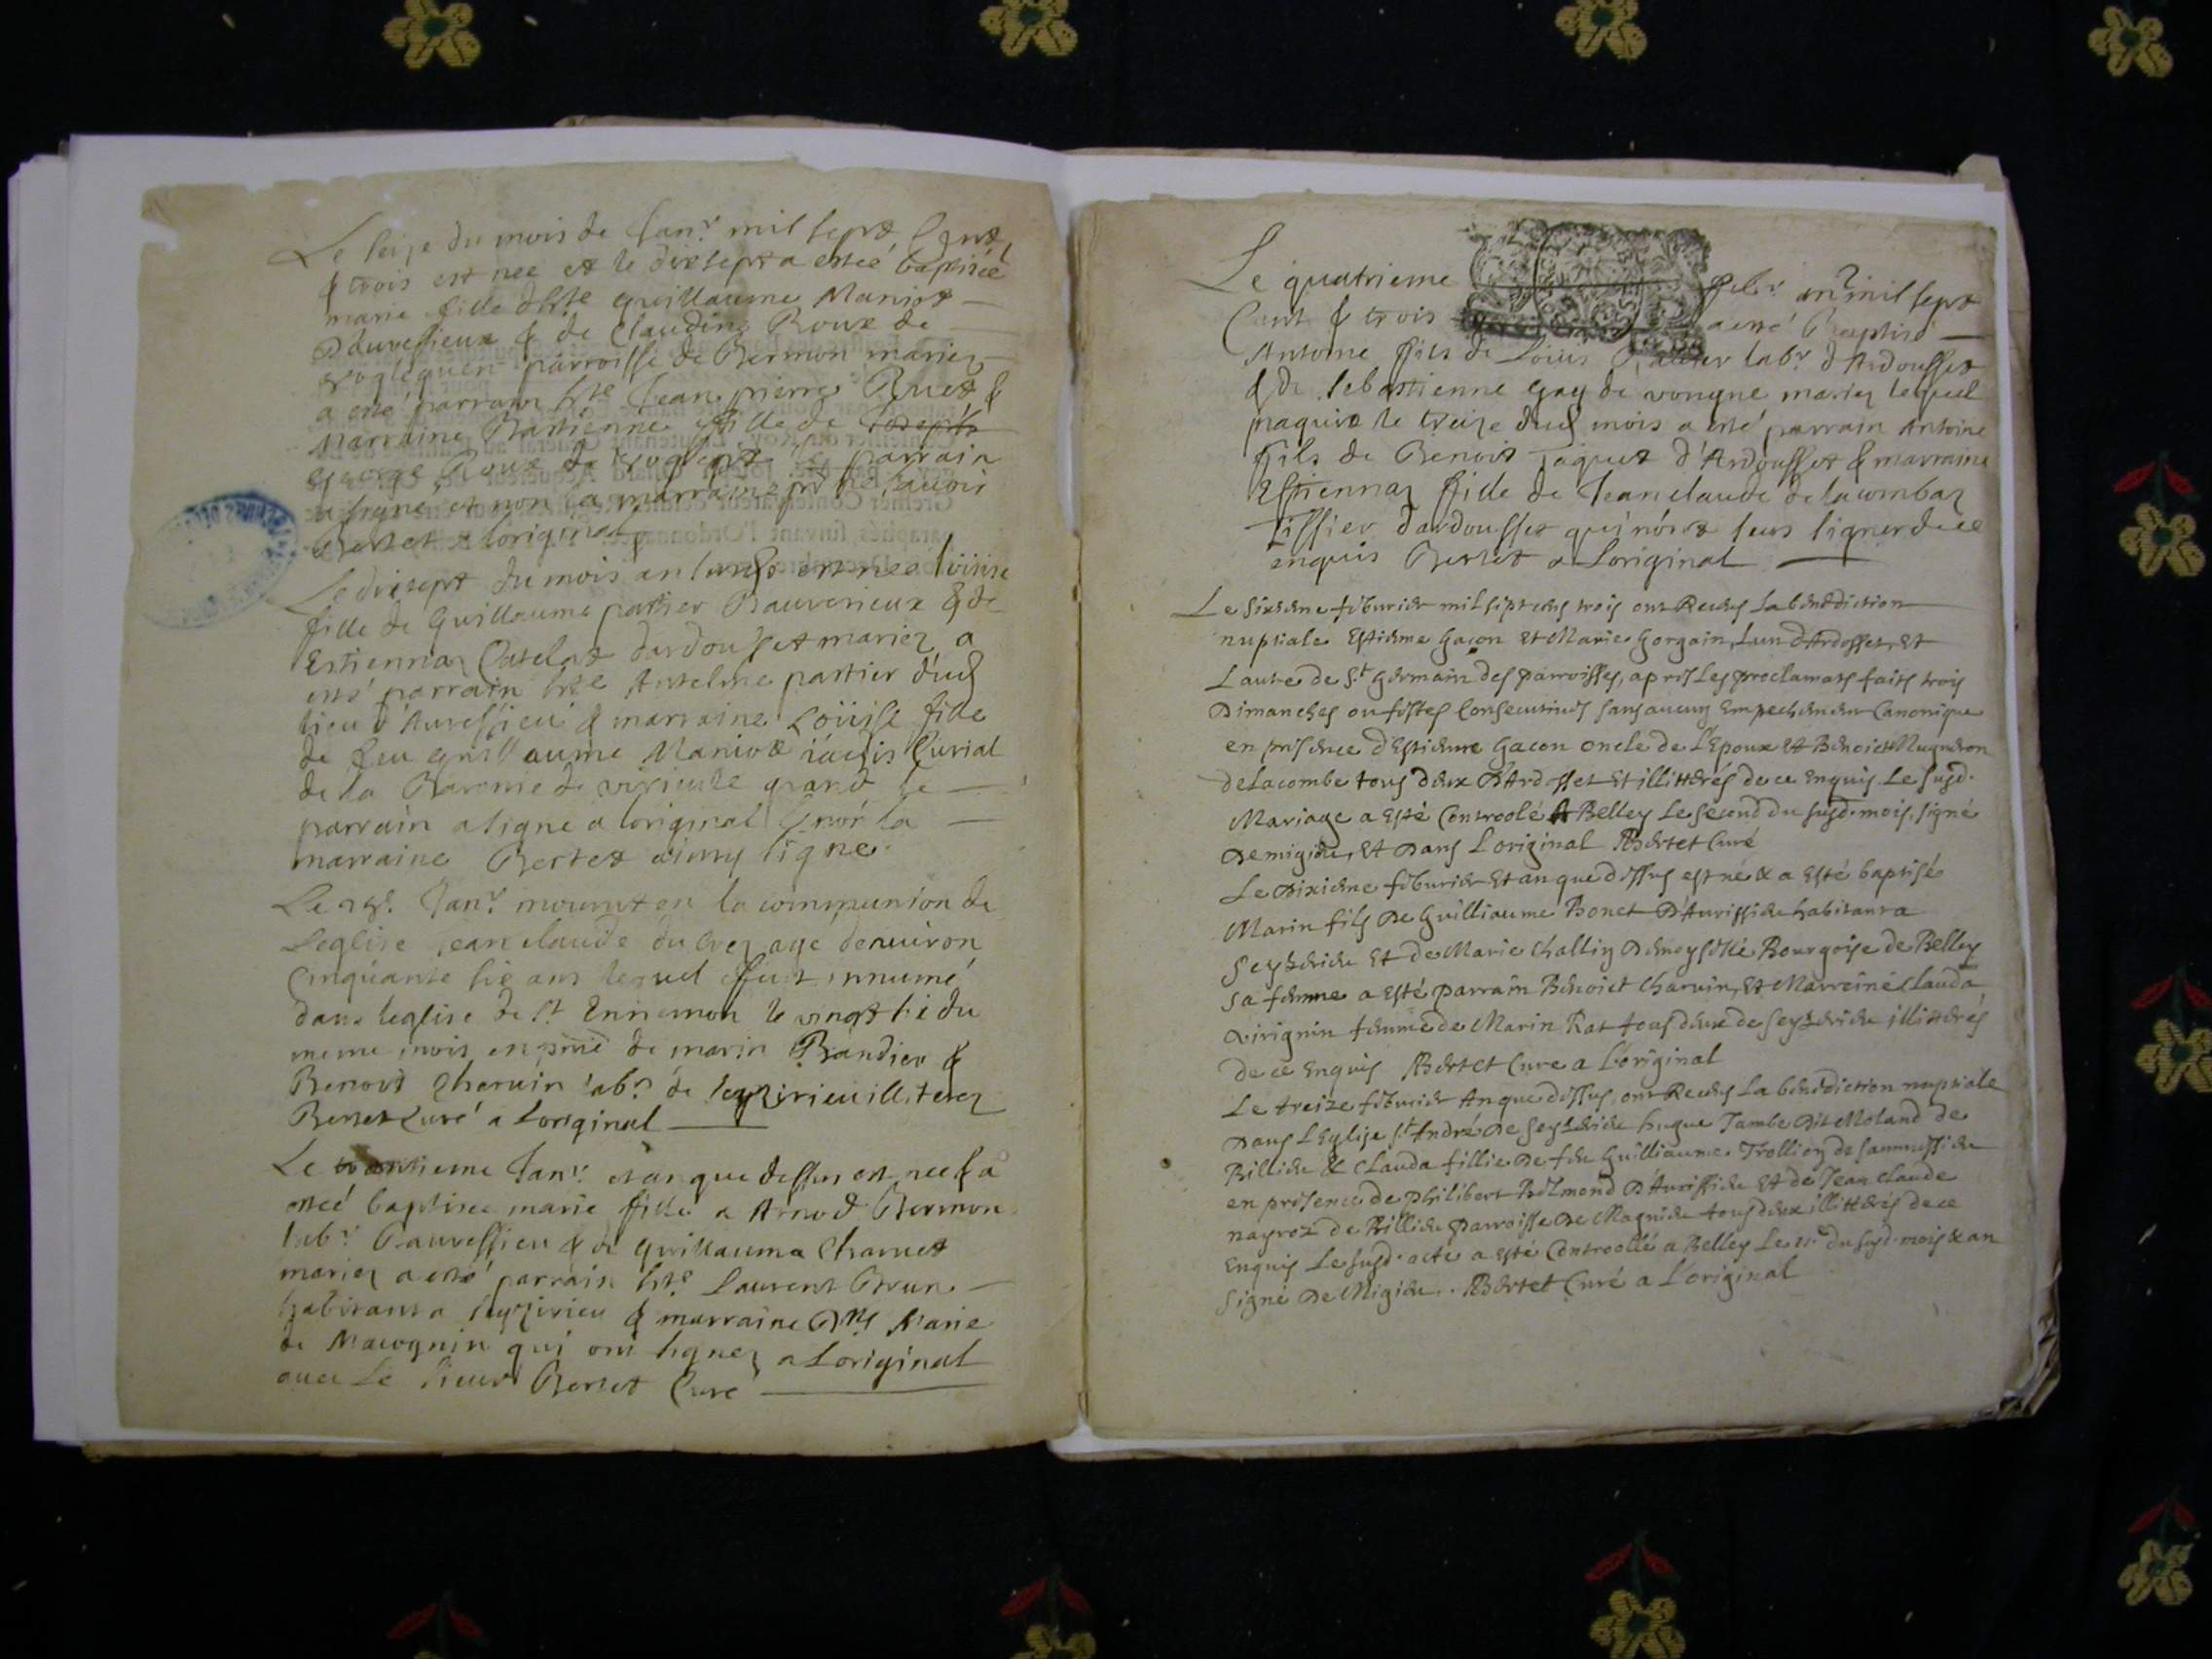 Le seize du mois de Janr mil sept Cent
& trois est nee et le dixsept a esteé baptisée
marie fille dhte guillaume Maniot
Dauressieux & de Claudine Roux de
parroisse de Bermon mariez
a esté parrain hte Jean pierre &
Marraine Bastienne fille de Joseph
george Roux de le parrain
a signe et non la marraine pr ne scavoir
Bertet a loriginal
Le dixsept du mois an susd est nee loüise
fille de Guillaume partier Dauresieux & de
Estiennaz Catelat dardousset mariez a
esté parrain hte Antelme partier dud
lieu d'Auressieu & marraine Loüise fille
de feu guillaume Maniot iadis Curial
de la Baronie de grand le
parrain a signe a loriginal & non la
marraine Bertet ainsy signe
Le Janr mourut en la communion de
Leglise Jean claude du Crez agé denuiron
Cinquante six ans lequel fust innumé
dans leglise de St Ennemon le vingt six du
meme mois en pnce de marin Bandier &
Benoit Charuin labr de Seyzirieu illiterez
Bertet Curé a Loriginal
Le trantieme Janr et an que dessus est nee & a
esteé baptisee marie fille a Arnod Bermon
labr Dauressieu & de guillauma Charuet
mariez a esté parrain hte Laurent Brun
habitant a Seyzirieu & marraine Dlle Marie
de Maognin qui ont signez a Loriginal
auec Le sieur Bertet Curé
Le quatrieme febr an mil sept
Cent & trois a esté Baptisé
Antoine fils de Loüis labr d'Ardousset
& de Sebastienne gay de vongne mariez lequel
naquit le treize dud mois a esté parrain Antoine
fils de Benoit Jaquet d'Ardousset & marraine
Estiennaz fille de Jean claude delacombaz
Tissier dardousset qui n'ont sceu signer de ce
enquis Bertet a Loriginal
Le sixieme feburier mil sept cens trois ont Receus La benediction
nuptiale Estienne Gacon et Marie Gorgain, Lun d'Ardosset, et
Lautre de St Germain des parroisses, apres Les proclamats faits trois
Dimanches ou festes Consecutiues sans aucun Empechement Canonique
en presence d'Estienne Gacon oncle de L'Epoux et Benoict Mugneron
de Lacombe tous deux d'Ardosset et illitterés de ce enquis Le susd.
Mariage a esté Controolé A Belley Le second du susd. mois, signé
Demigieu, Et Dans L'original Bertet Curé
Le Dixieme feburier et an que dessus est né & a esté baptisé
Marin fils de Guilliaume Bonet d'Auressieu habitant a
Seyzerieu Et de Marie Challin demoyselle Bourgoise de Belley
sa femme a esté parrain Benoict Charuin, et Marreine Clauda
Virignin femme de Marin Rat tous deux de Seyzerieu illitterés
de ce enquis Bertet Cure a L'original
Le treize feburier An que dessus, ont Receus La benediction nuptiale
Dans L'Eglise St André de Seyzerieu hugue Jambe dit Moland de
Billieu & Clauda fillie de feu Guilliaume Trollion de
en presence de philibert Belmond d'Auressieu et de Jean Claude
nayroz de Billieu parroisse de Magnieu tous deux illitterés de ce
enquis Le susd. acte a esté Controollé a Belley Le du susd. mois & an
signé De Migieu. Bertet Curé a L'original